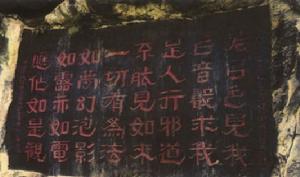 若以色見我
以音聲求我
是人行邪道
不能見如来
一切有為法
如夢幻泡影
如露亦如電
應作如是觀